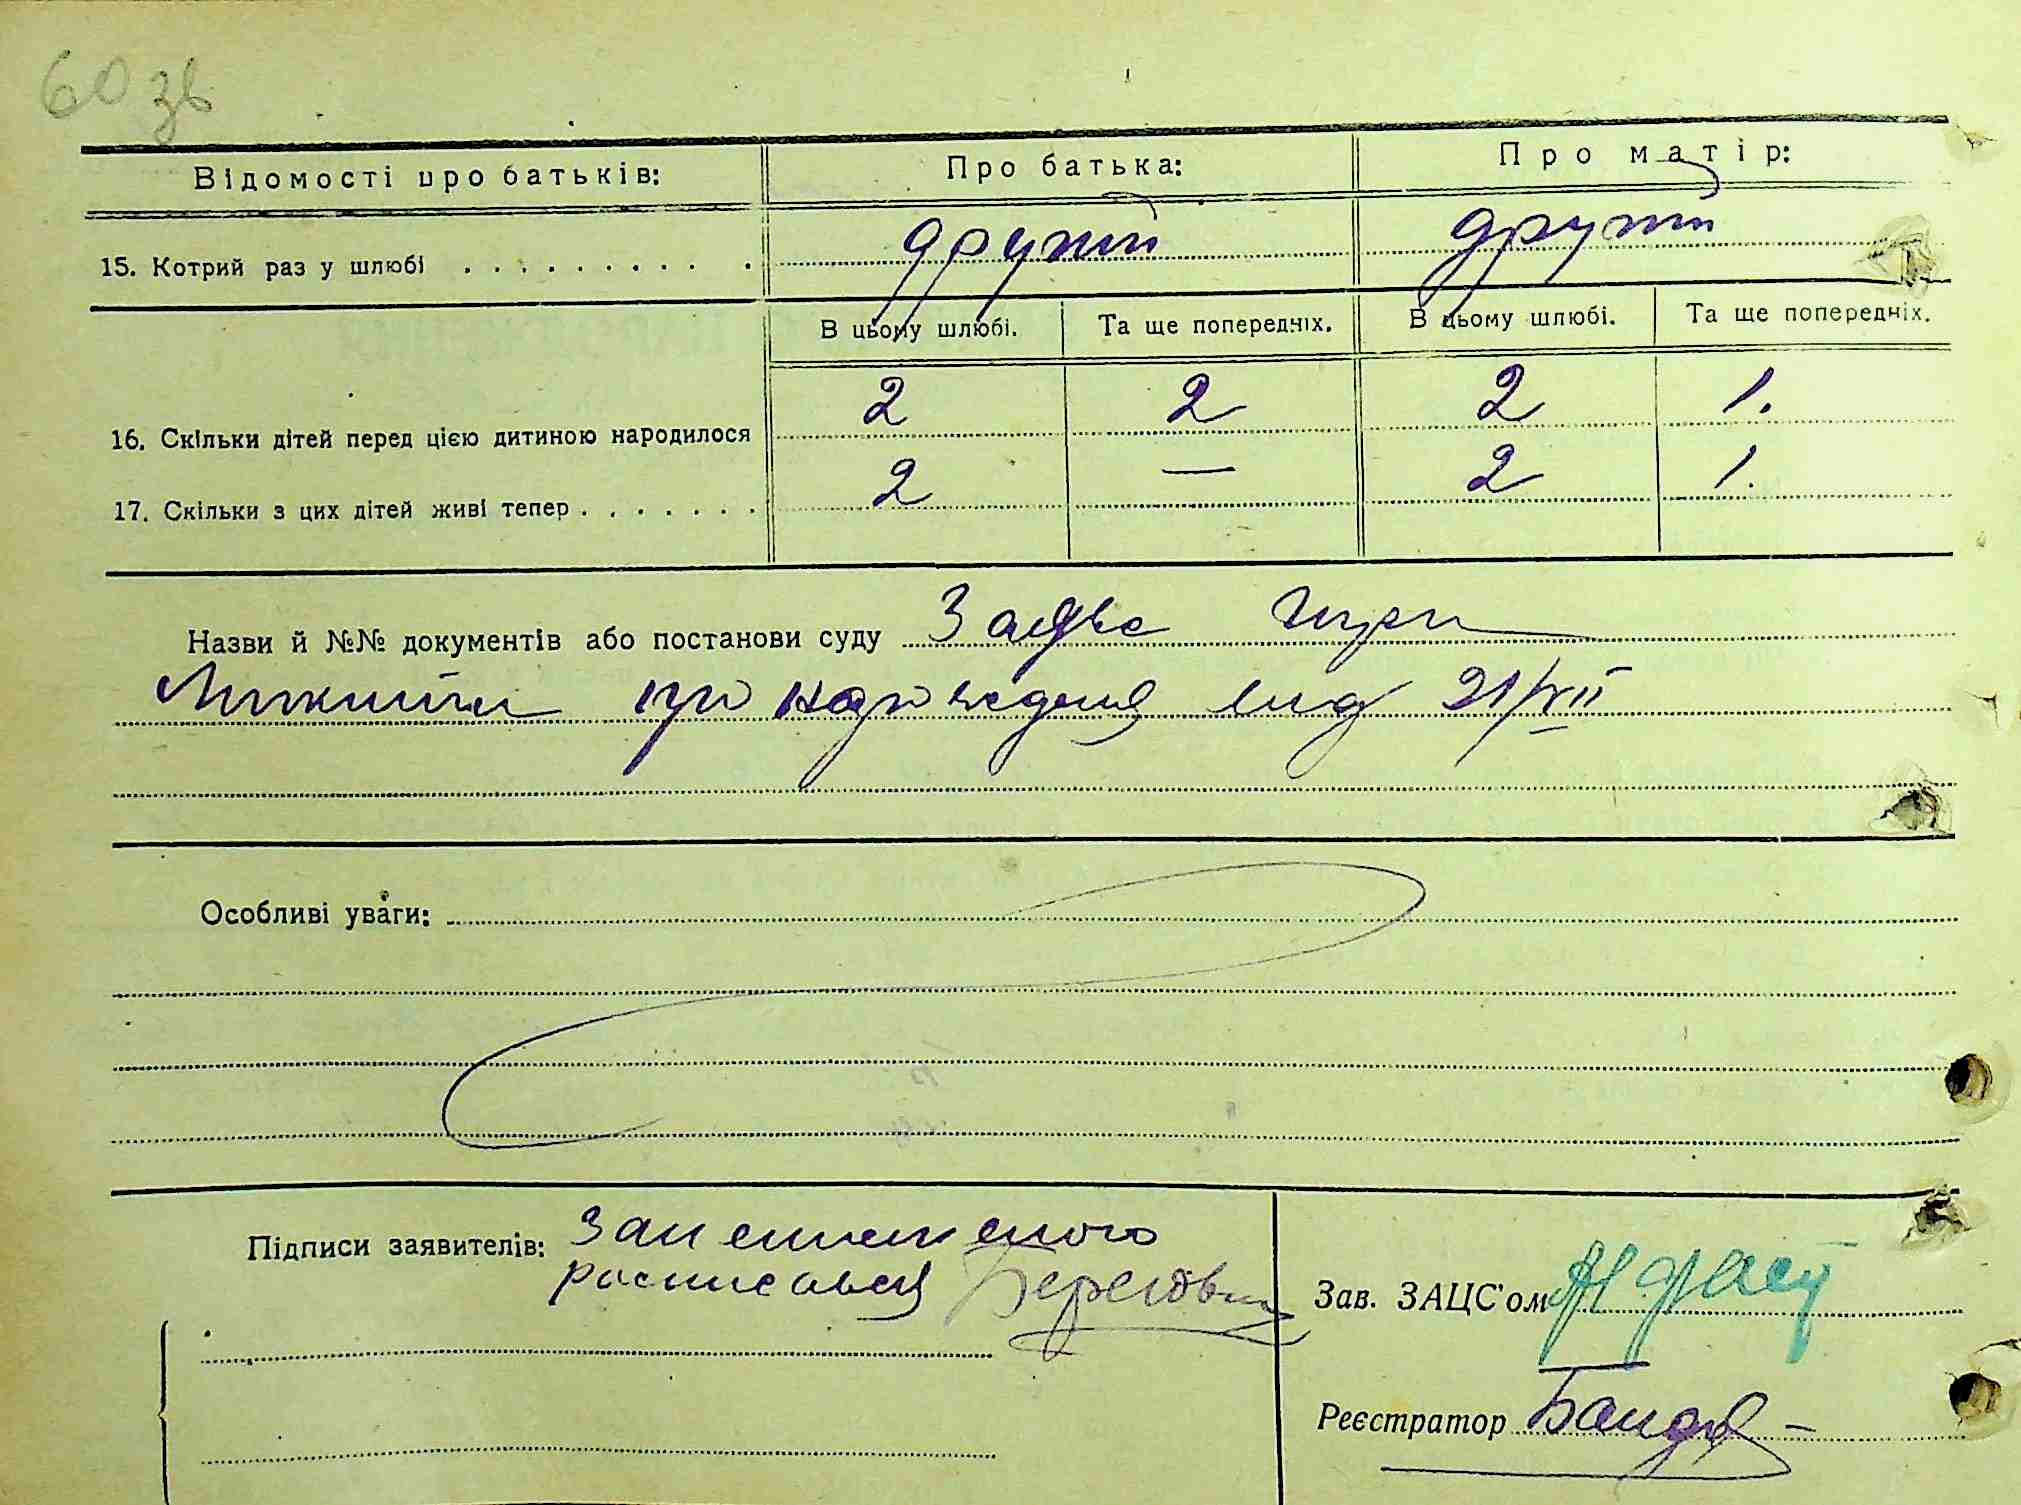 60 зв
Відомості про батьків: Про батька: Про матір:
15. Котрий раз у шлюбі . . . . . . . . . . . другий другий
В цьому шлюбі. Та ще попередніх. В цьому шлюбі. Та ще попередніх.
16. Скільки дітей перед цією дитиною народилося 2 2 2 1.
17. Скільки з цих дітей живі тепер . . . . . . . 2 — 2 1.
Назви й №№ документів або постанови суду Заява
про народження від 21/VII
Особливі уваги:
Підписи заявителів: За неписьменного
росписався
Зав. ЗАЦС'ом
Реєстратор